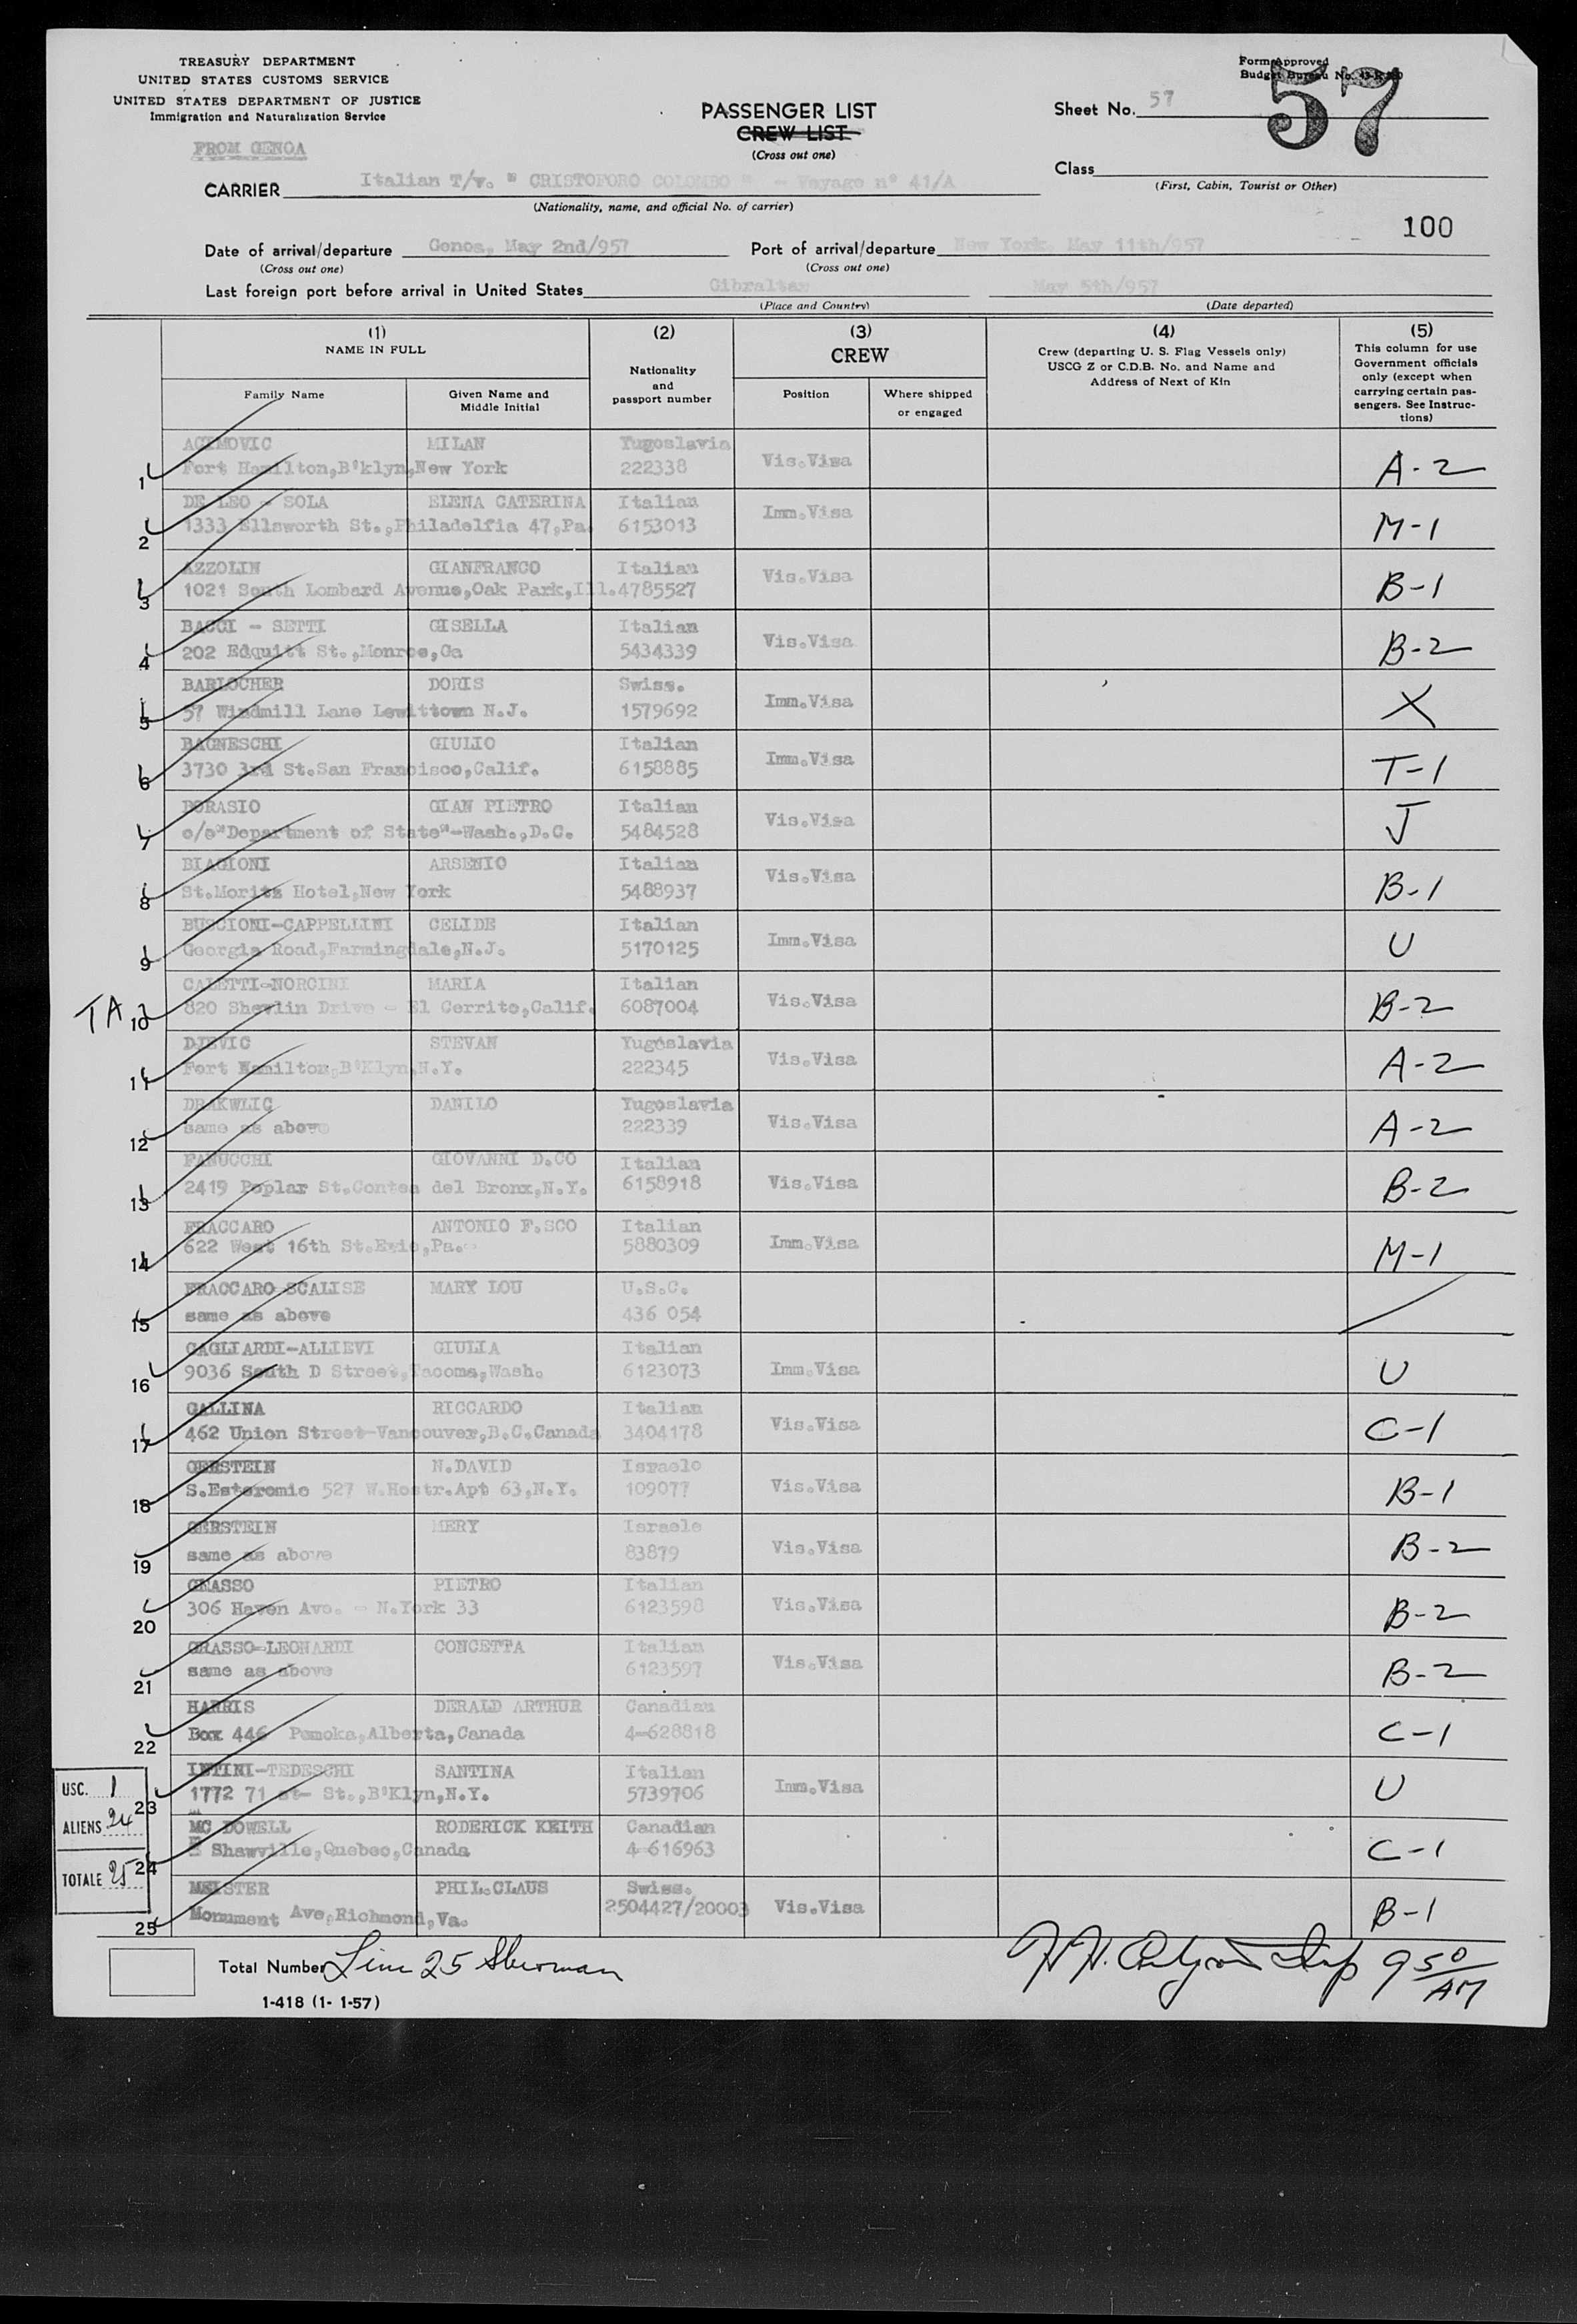 TREASURY DEPARTMENT
UNITED STATES CUSTOMS SERVICE
UNITED STATES DEPARTMENT OF JUSTICE
Immigration and Naturalization Service
Form Approved
Budget Bureau No.
57
PASSENGER LIST
CREW LIST
(Cross out one)
Sheet No. 57
FROM GENOA
Class
(First, Cabin, Tourist or Other)
CARRIER Italian T/v. " CRISTOFORO COLOMBO " - Voyage n° 41/A
(Nationality, name, and official No. of carrier)
100
Date of arrival/departure Genoa, May 2nd/957 Port of arrival/departure New York, May 11th/957
(Cross out one) (Cross out one)
Last foreign port before arrival in United States Gibraltar May 5th/957
(Place and Country) (Date departed)
(1) (2) (3) (4) (5)
NAME IN FULL
Family Name
Given Name and Middle Initial
Nationality and passport number
CREW
Position
Where shipped or engaged
Crew (departing U. S. Flag Vessels only)
USCG Z or C.D.B. No. and Name and
Address of Next of Kin
This column for use
Government officials
only (except when
carrying certain pas-
sengers. See Instruc-
tions)
1 ACIMOVIC MILAN Yugoslavia Vis.Visa A-2
Fort Hamilton,B'klyn,New York 222338
2 DE LEO - SOLA ELENA CATERINA Italian Imm.Visa M-1
1333 Ellsworth St.,Philadelfia 47,Pa. 6153013
3 AZZOLIN GIANFRANCO Italian Vis.Visa B-1
1021 South Lombard Avenue,Oak Park,Ill. 4785527
4 BAGGI - SETTI GISELLA Italian Vis.Visa B-2
202 Edquitt St.,Monroe,Ga 5434339
5 BARLOCHER DORIS Swiss. Imm.Visa X
57 Windmill Lane Lewittown N.J. 1579692
6 BAGNESCHI GIULIO Italian Imm.Visa T-1
3730 3rd St.San Francisco,Calif. 6158885
7 BORASIO GIAN PIETRO Italian Vis.Visa J
c/o"Department of State"-Wash.,D.C. 5484528
8 BIAGIONI ARSENIO Italian Vis.Visa B-1
St.Moritz Hotel,New York 5488937
9 BUSCIONI-CAPPELLINI CELIDE Italian Imm.Visa U
Georgia Road,Farmingdale,N.J. 5170125
TA 10 CALETTI-NORCINI MARIA Italian Vis.Visa B-2
820 Shevlin Drive - El Cerrito,Calif. 6087004
11 DJEVIC STEVAN Yugoslavia Vis.Visa A-2
Fort Hamilton,B'Klyn,N.Y. 222345
12 DRAKWLIC DANILO Yugoslavia Vis.Visa A-2
same as above 222339
13 FANUCCHI GIOVANNI D.CO Italian Vis.Visa B-2
2419 Poplar St.Contea del Bronx,N.Y. 6158918
14 FRACCARO ANTONIO F.SCO Italian Imm.Visa M-1
622 West 16th St.Erie,Pa. 5880309
15 FRACCARO-SCALISE MARY LOU U.S.C.
same as above 436 054
16 GAGLIARDI-ALLIEVI GIULIA Italian Imm.Visa U
9036 South D Street,Tacoma,Wash. 6123073
17 GALLINA RICCARDO Italian Vis.Visa C-1
462 Union Street-Vancouver,B.C.Canada 3404178
18 GERSTEIN N.DAVID Israele Vis.Visa B-1
S.Esteromic 527 W.Hostr.Apt 63,N.Y. 109077
19 GERSTEIN MERY Israele Vis.Visa B-2
same as above 83879
20 GRASSO PIETRO Italian Vis.Visa B-2
306 Haven Ave. - N.York 33 6123598
21 GRASSO-LEONARDI CONCETTA Italian Vis.Visa B-2
same as above 6123597
22 HARRIS DERALD ARTHUR Canadian C-1
Box 446 Pemoka,Alberta,Canada 4-628818
23 INTINI-TEDESCHI SANTINA Italian Imm.Visa U
1772 71 st- St.,B'Klyn,N.Y. 5739706
24 MC DOWELL RODERICK KEITH Canadian C-1
Shawville,Quebec,Canada 4-616963
25 MEISTER PHIL.CLAUS Swiss. Vis.Visa B-1
Monument Ave,Richmond,Va. 2504427/20003
USC. 1
ALIENS 24
TOTALE 25
Total Number Line 25 Sherman
9 50 AM
I-418 (1- 1-57)